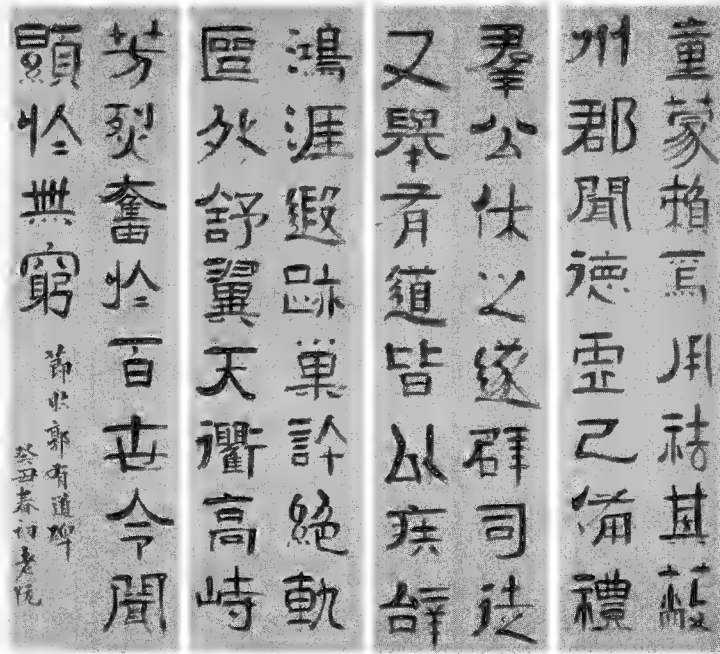 童蒙賴焉用祛其蔽
州郡聞德虛己備禮
羣公休之遂辟司徒
又舉有道皆以疾辭
鴻涯遐跡巢許絕軌
區外舒翼天衢高峙
芳烈奮於百世令聞
顯於無窮
節郭有道碑
癸丑春初老